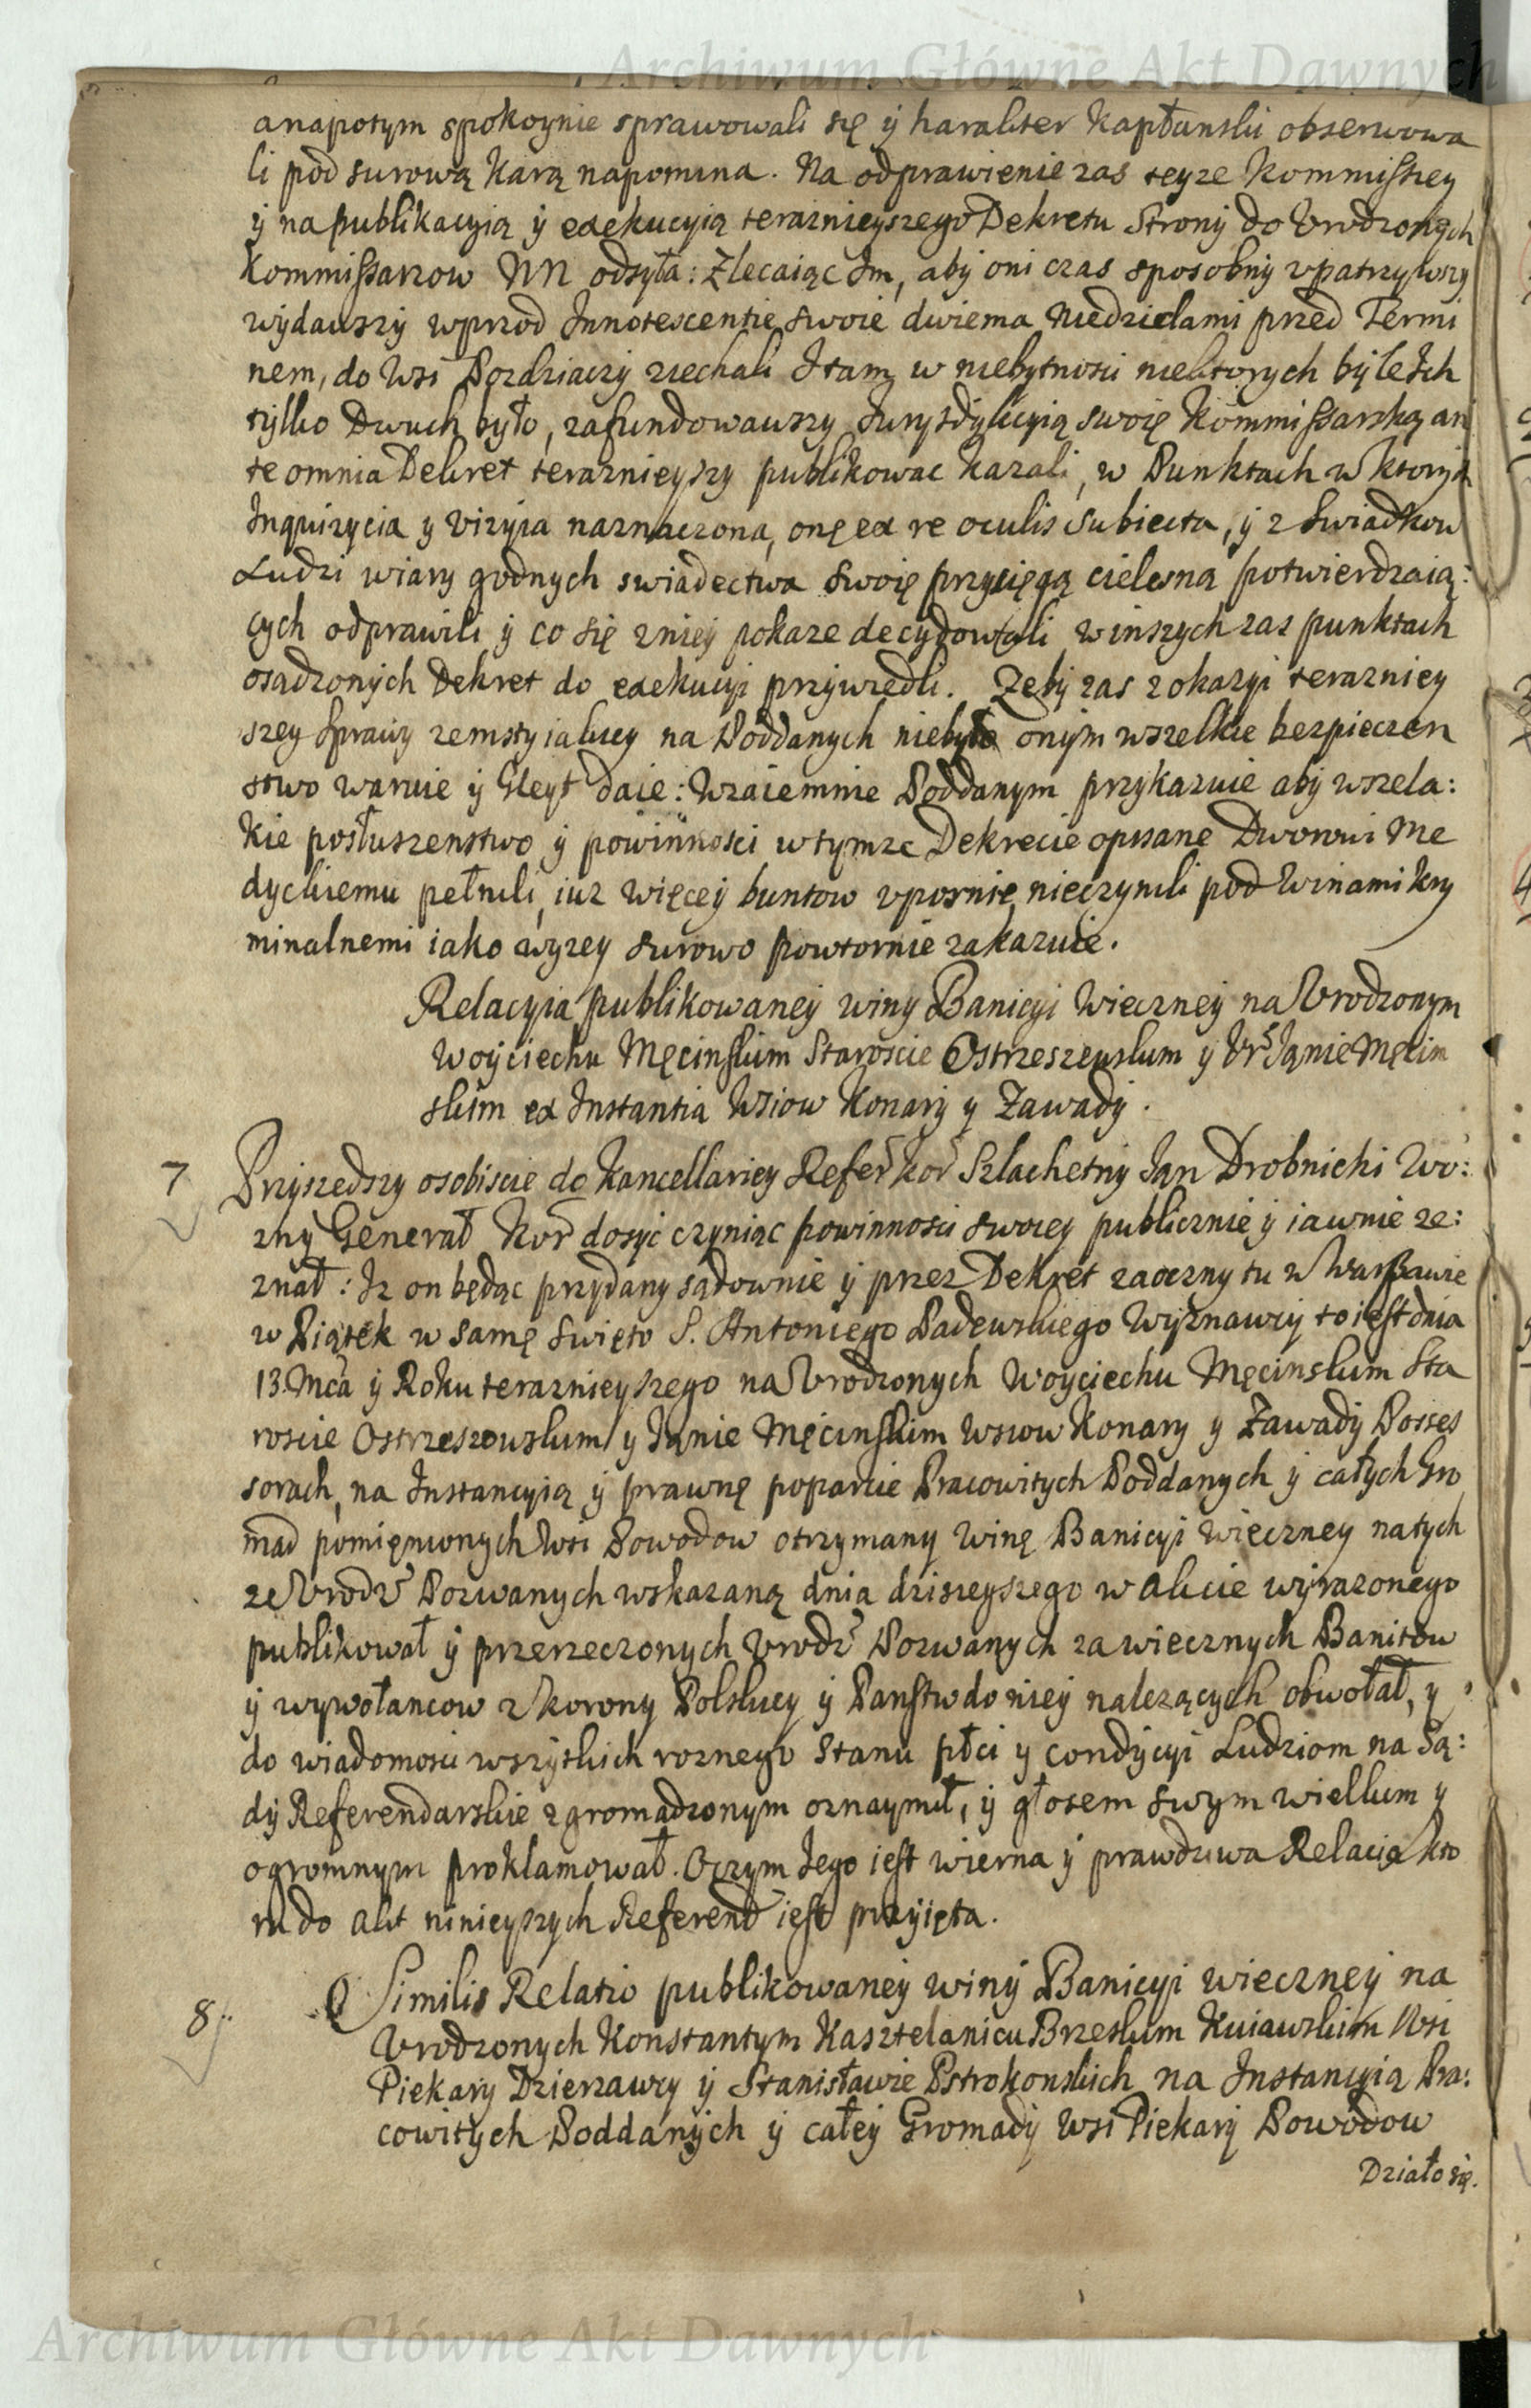 Archiwum Główne Akt Dawnych
anapotym spokoynie sprawowali się y harakter Kapłanski obserwowa
li pod surową Karą napomina. Na odprawienie zas teyze Kommissiey
y na publikacyią y exekucyią teraznieyszego Dekretu Strony do Vrodzonych
Kommissarzow NN odsyła: Zlecaiąc Im, aby oni czas sposobny vpatrzywszy
wydawszy wprzod Innotescentie swoie dwiema Niedzielami przed Termi
nem, do Wsi Pozdziaczy ziechali I tam w niebytnosci niektorych byle Ich
tylko Dwuch było, zafundowawszy Iurysdykcyią swoię Kommissarską an
te omnia Dekret teraznieyszy publikowac kazali, w Punktach w ktorych
Inquizycia y Vizyia naznaczona, onę ex re oculis subiecta, y z Swiadkow
Ludzi wiary godnych swiadectwa swoię przysięgą cielesną potwierdzaią:
cych odprawili y co się zniey pokaze decydowali w inszych zas punktach
osądzonych Dekret do exekucyi przywiedli. Zeby zas z okazyi terazniey
szey Sprawy zemsty iakiey na Poddanych niebyło onym wszelkie bezpieczen
stwo waruie y Gleyt daie: Wzaiemnie Poddanym przykazuie aby wszela:
kie posłuszenstwo y powinnosci wtymze Dekrecie opisane Dworowi Me
dyckiemu pełnili, iuz więcey buntow vpornie nieczynili pod Winami kry
minalnemi iako wyzey surowo powtornie zakazuie.
Relacyia publikowaney winy Banicyi Wieczney na Vrodzonym
Woyciechu Męcinskim Staroscie Ostrzeszewskim y Vr Ianie Męcin
skim ex Instantia Wsiow Konary y Zawady.
7 Przyszedszy osobiscie do Kancellariey Refer Kor Szlachetny Ian Drobnicki Wo:
zny Generał Kor dosyc czyniąc powinnosci swoiey publicznie y iawnie ze:
znał: Iz on będąc przydany sądownie y przez Dekret zaoczny tu w Warszawie
w Piątek w samę swięto S. Antoniego Padewskiego Wyznawcy to iest dnia
13 Mca y Roku teraznieyszego na Vrodzonych Woyciechu Męcinskim Sta
roscie Ostrzeszowskim y Ianie Męcinskim Wsiow Konary y Zawady Posses
sorach, na Instancyią y prawnę poparcie Pracowitych Poddanych y całych Gro
mad pomięnionych Wsi Powodow otrzymany Winę Banicyi Wieczney na tych
ze Vrodz Pozwanych wskazaną dnia dzisieyszego w akcie wyrazonego
publikował y przerzeczonych Vrodz Pozwanych za wiecznych Banitow
y wywołancow z Korony Polskiey y Panstw do niey nalezących obwołał, y
do wiadomosci wszystkich roznego stanu płci y condycyi Ludziom na Są:
dy Referendarskie zgromadzonym oznaymił, y głosem swym wielkim y
ogromnym proklamował. Oczym Iego iest wierna y prawdziwa Relacia kto
ra do akt ninieyszych Referend iest przyięta.
8. Similis Relatio publikowaney winy Banicyi wieczney na
Vrodzonych Konstantym Kasztelanicu Brzeskim Kuiawskim Wsi
Piekary Dzierzawcy y Stanisławie Pstrokonskich na Instancyią Pra:
cowitych Poddanych y całey Gromady Wsi Piekary Powodow
Działo się.
Archiwum Główne Akt Dawnych